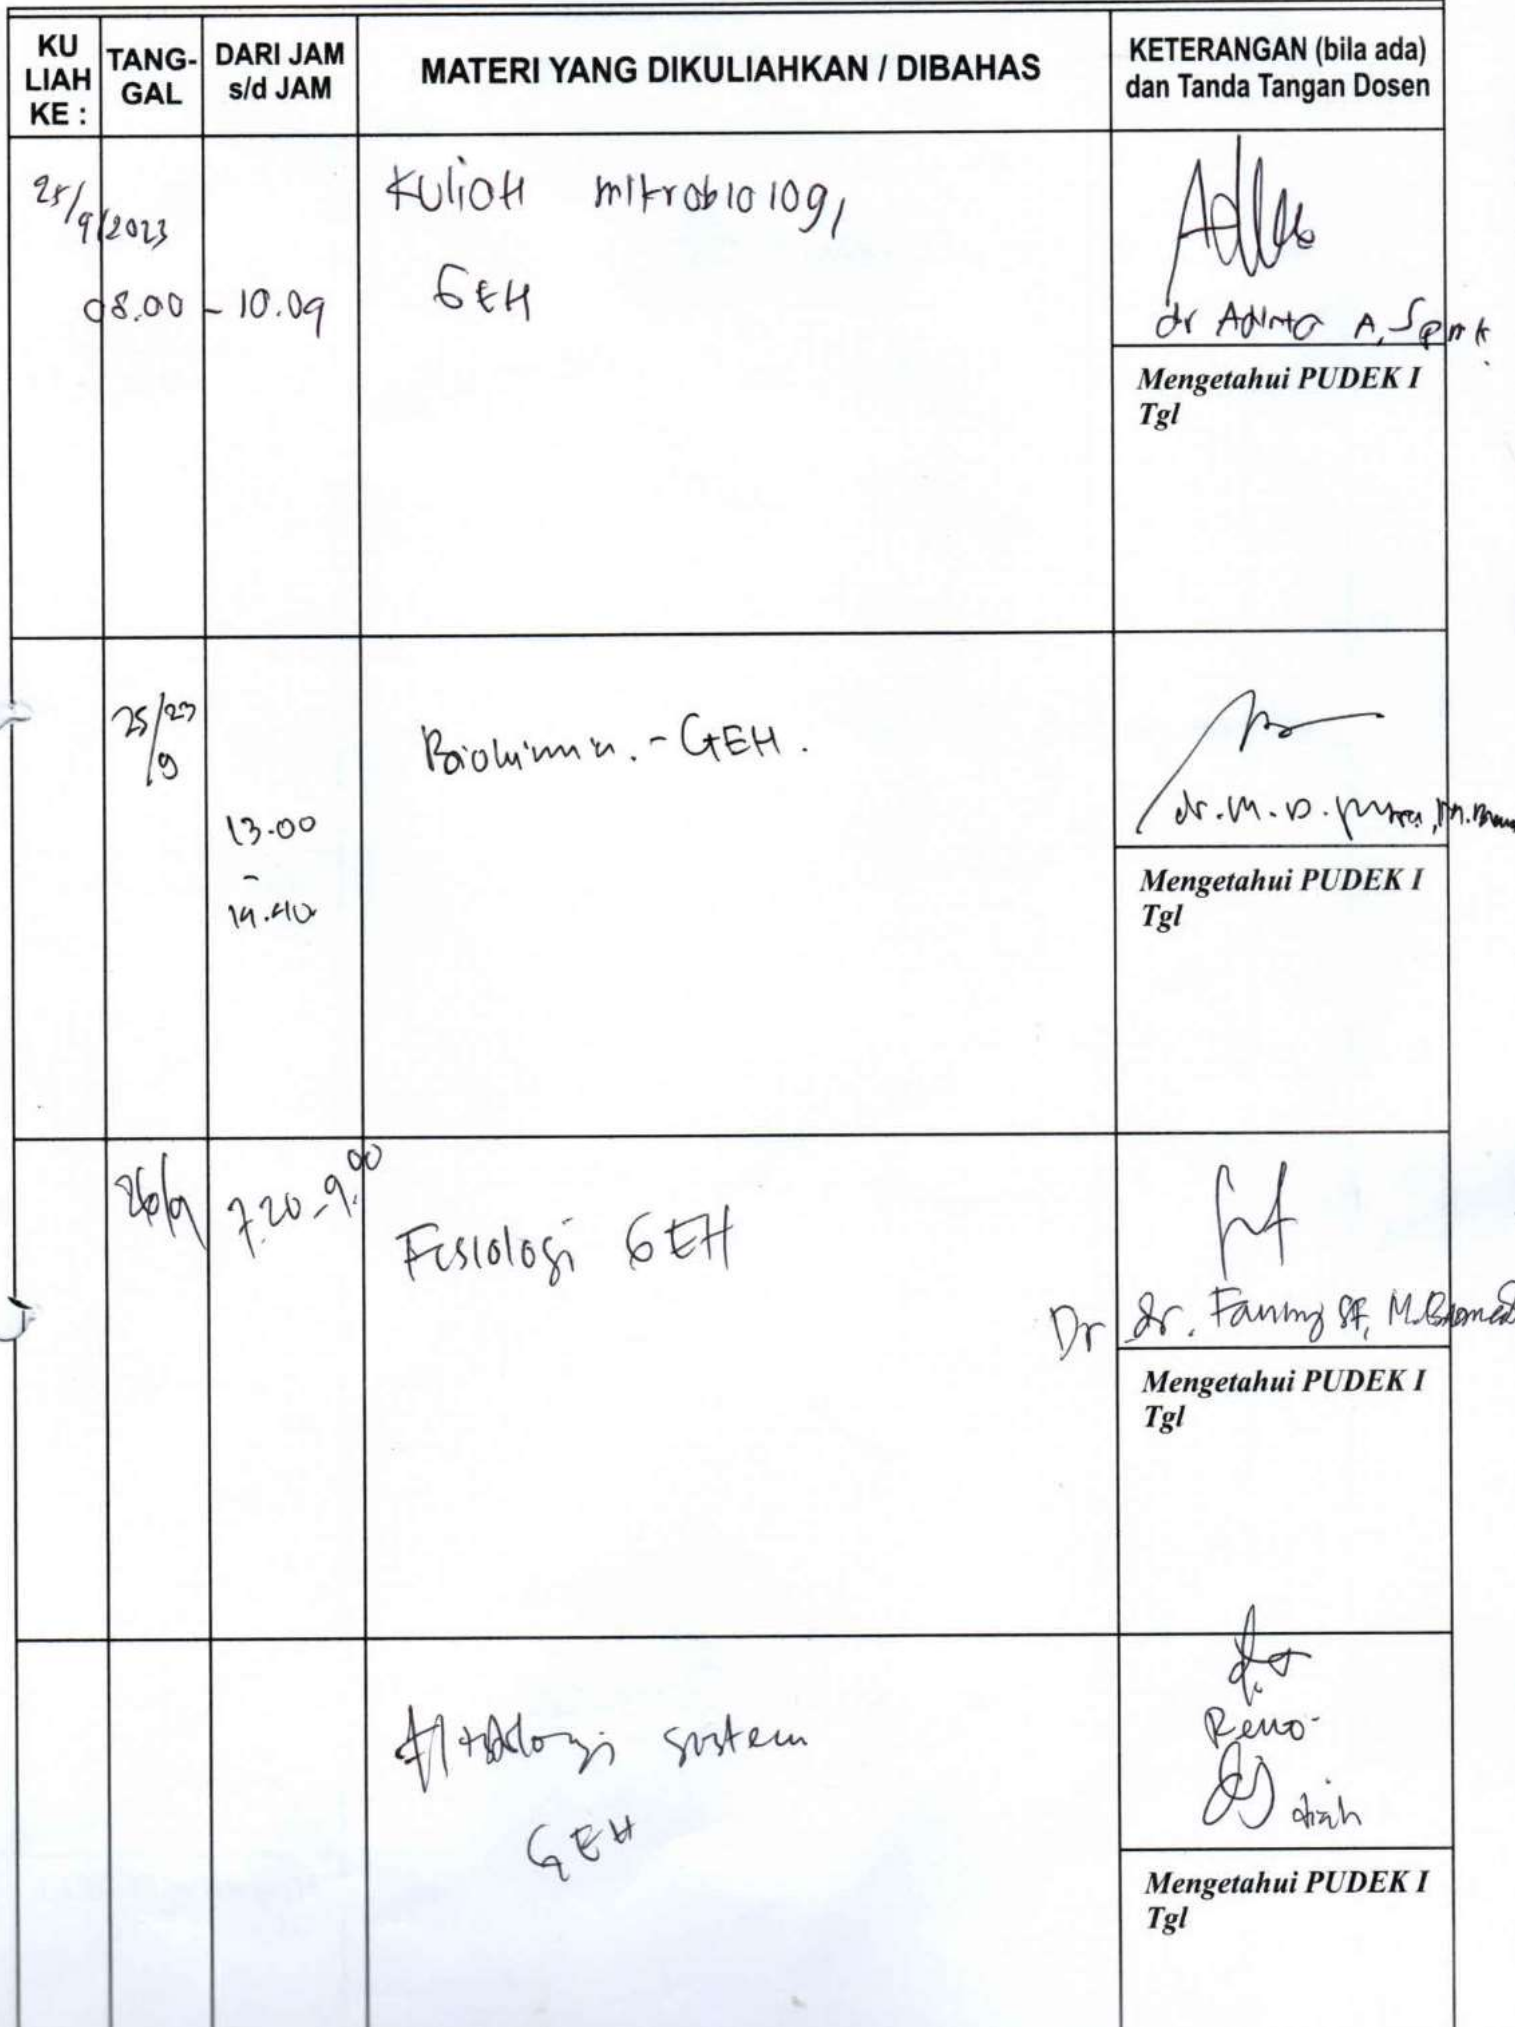 KU LIAH KE :
TANG-GAL
DARI JAM s/d JAM
MATERI YANG DIKULIAHKAN / DIBAHAS
KETERANGAN (bila ada) dan Tanda Tangan Dosen
25/9/2023
08.00 - 10.00
Kuliah mikrobiologi
GEH
dr A, SpMK
Mengetahui PUDEK I
Tgl
25/9 23
13.00
-
14.40
Biokimia. - GEH.
dr. M. D.
Mengetahui PUDEK I
Tgl
26/9
7.20 - 9.00
Fisiologi GEH
Dr dr. Fanny SF, M.Biomed
Mengetahui PUDEK I
Tgl
system
GEH
Reno
Mengetahui PUDEK I
Tgl